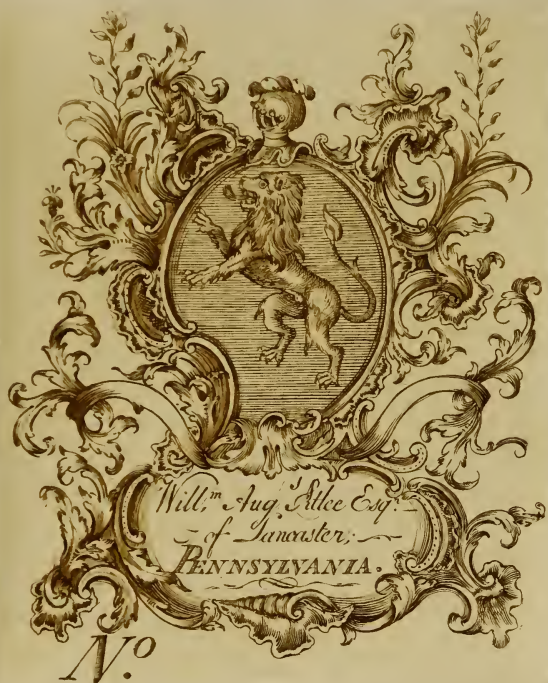 Will.m Aug.s Atlee Esq.r
of Lancaster,
PENNSYLVANIA.
N.o